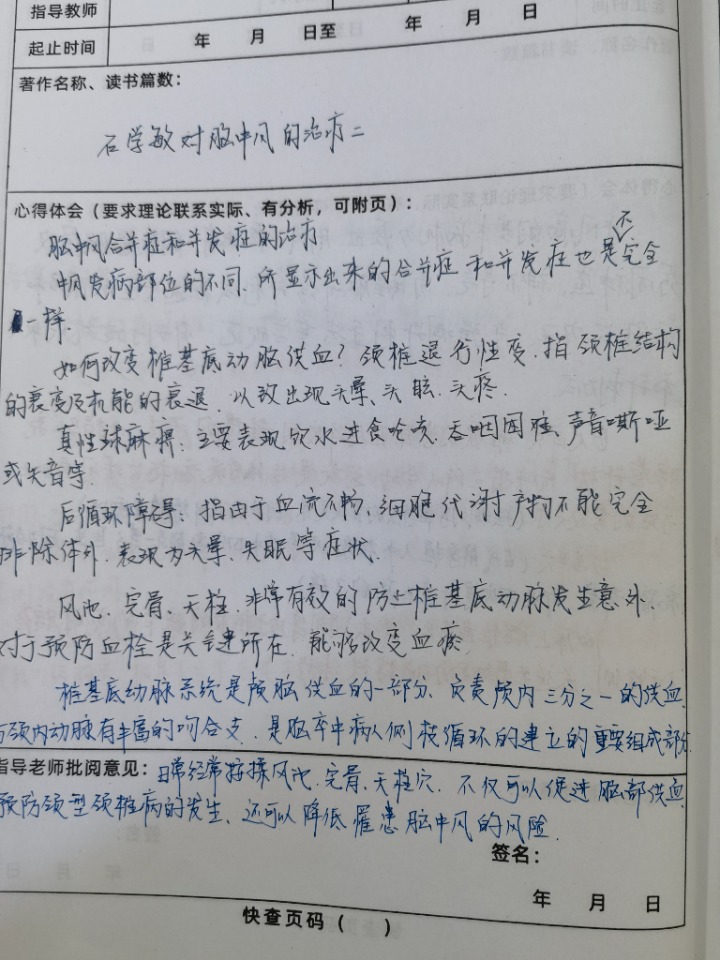 指导教师 年 月 日
起止时间 年 月 日至 年 月 日
著作名称、读书篇数：
石学敏对脑中风的治疗二
心得体会（要求理论联系实际、有分析，可附页）：
脑中风合并症和并发症的治疗
中风发病部位的不同，所显示出来的合并症和并发症也是不完全
一样
如何改变椎基底动脑供血？颈椎退行性变，指颈椎结构
的衰变及机能的衰退，以致出现头晕、头眩、头疼.
真性球麻痹：主要表现饮水进食呛咳、吞咽困难、声音嘶哑
或失音等
后循环障碍：指由于血流不畅，细胞代谢产物不能完全
排除体外，表现为头晕、失眠等症状.
风池、完骨、天柱，非常有效的防止椎基底动脉发生意外.
对于预防血栓是关键所在，能够改变血瘀
椎基底动脉系统是颅脑供血的一部分，负责颅内三分之一的供血，
与颈内动脉有丰富的吻合支，是脑卒中病人侧枝循环的建立的重要组成部分
指导老师批阅意见：日常经常按揉风池、完骨、天柱穴，不仅可以促进脑部供血，
预防颈型颈椎病的发生，还可以降低罹患脑中风的风险.
签名：
年 月 日
快查页码（ ）